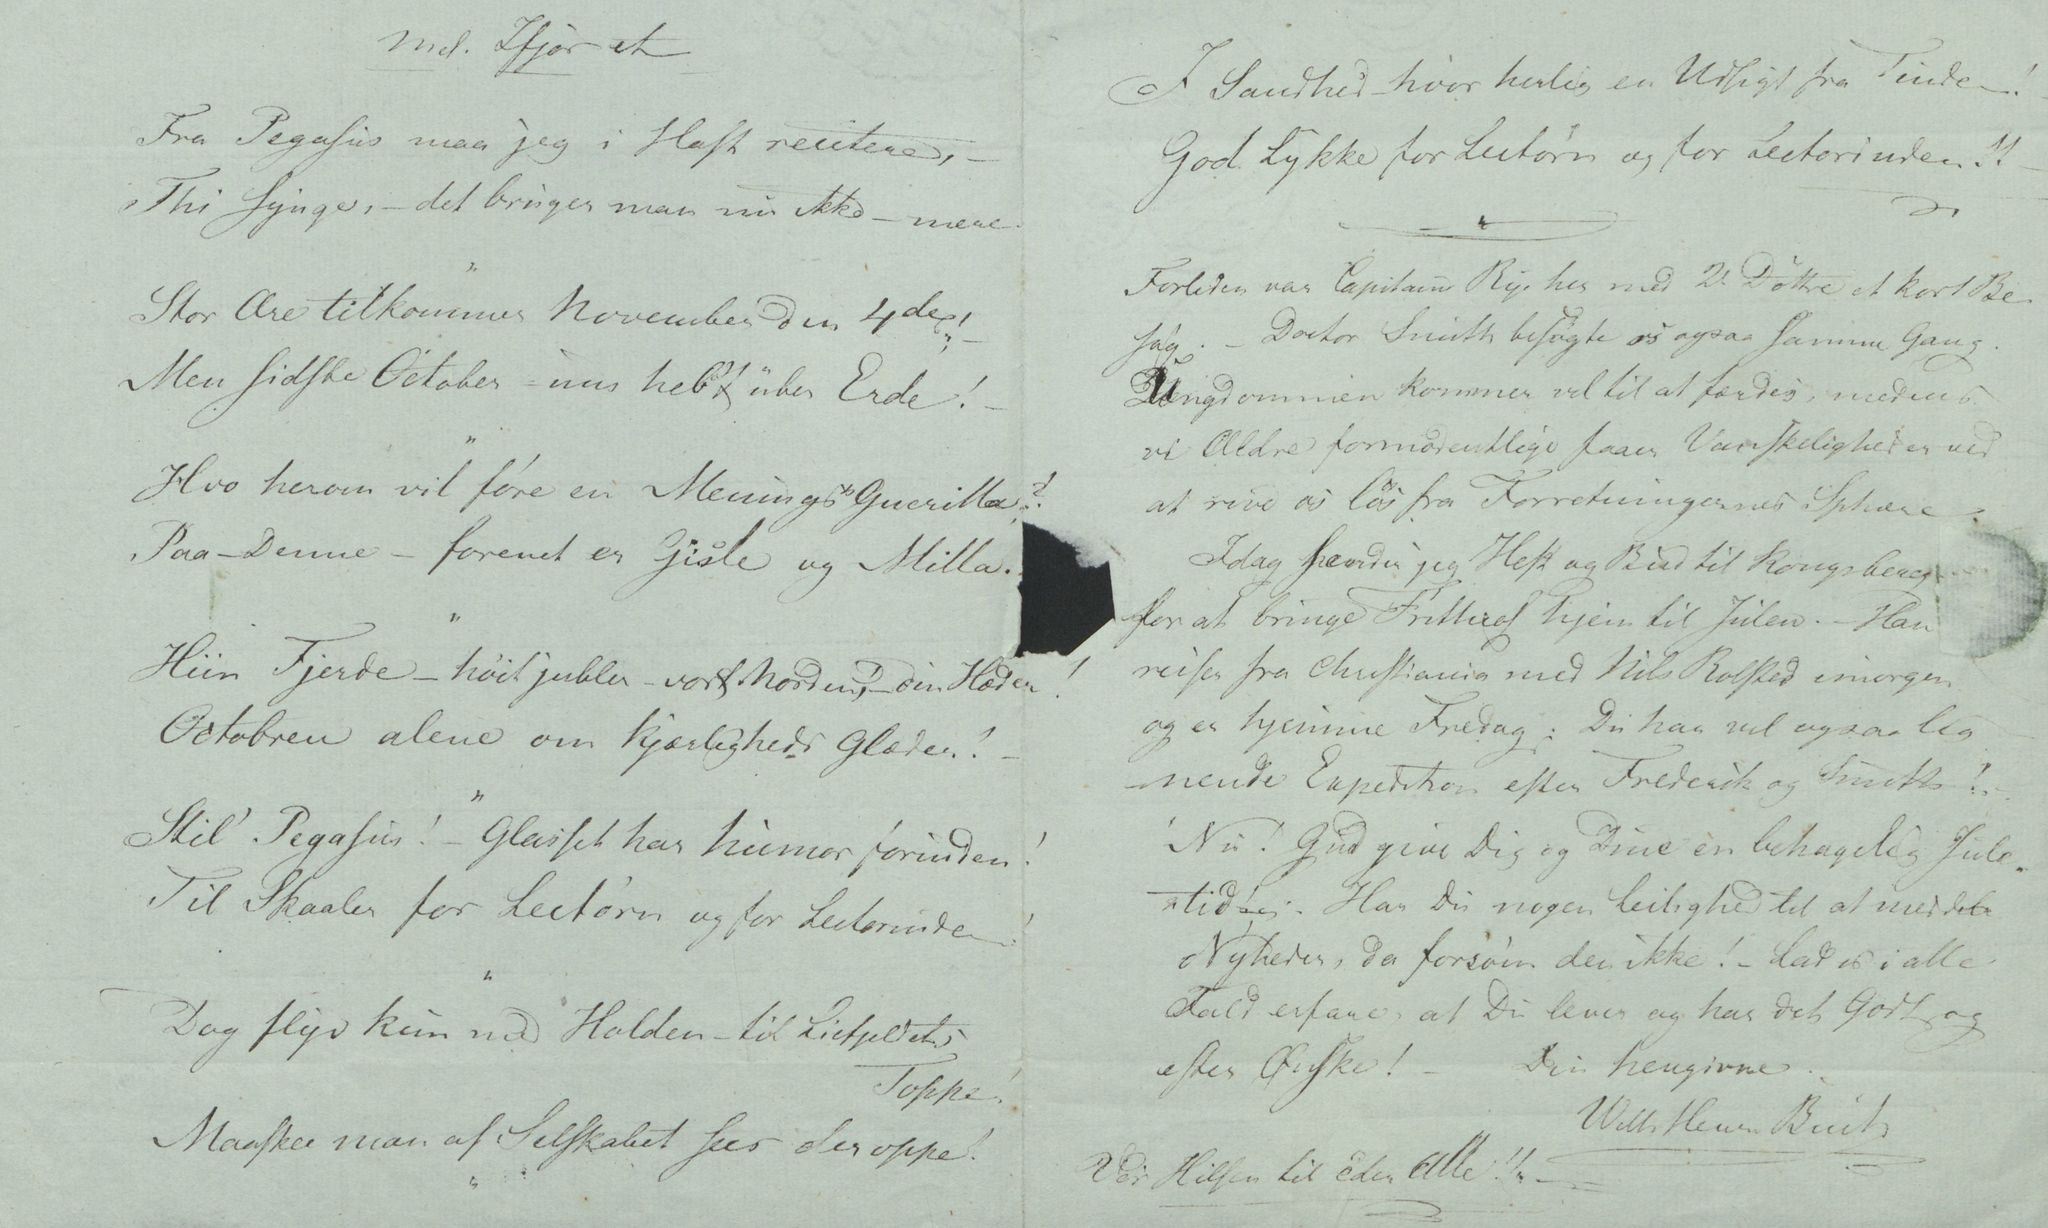 Mel. Ifjor et
Fra Pegasus maa jeg i Hast recitere, –
Thi synge, – det bruges man nu ikke – mere.
"
Stor Ære tilkommer November den 4de! –
Men sidste October – uns hebt über Erde! –
"
Hvo herom vil føre en Menings Guerilla?
Paa – Denne – forenet er Gisle og Milla.
"
Hiin Fjerde – høit jubler – vort Norden, – din Hæder!
Octobren alene om Kjærligheds Glæder! –
"
Stil' Pegasus! – Glasset har humor forinden!
Til Skaaler for Lectørn og for Lectorinden!
"
Dog flyv kun med Halden – til Liefjeldets
Toppe!
Maaskee man af Selskabet sees deroppe!
"
I Sandhed – hvor herlig en Udsigt fra Tinden! –
God Lykke for Lectørn og for Lectorinden!! –
Forleden var Capitain Rye her med 2 Døttre et kort Be
søg. – Doctor Smith besøgte os ogsaa samme Gang.
Ungdommen kommer vel til at færdes, medens
vi Ældre formodentlige faaer Vanskeligheder ved
at rive os løs fra Forretningernes Sphære.
Idag sender jeg Hest og Bud til Kongsberg
for at bringe hjem til Julen. – Han
reiser fra Christiania med Nils Rolsted imorgen
og er hjemme Fredag; Du har vel ogsaa lig
nende Expedition efter Frederik og Smith! –
Nu! Gud give Dig og Dine en behagelig Jule-
tid! – Har Du nogen Leilighed til at meddele
Nyheder, da forsøm den ikke! – Lad os i alle
Fald erfare, at Du lever og har det Godt og
efter Ønske! – Din hengivne
Buch
Vor Hilsen til Eder Alle!! –